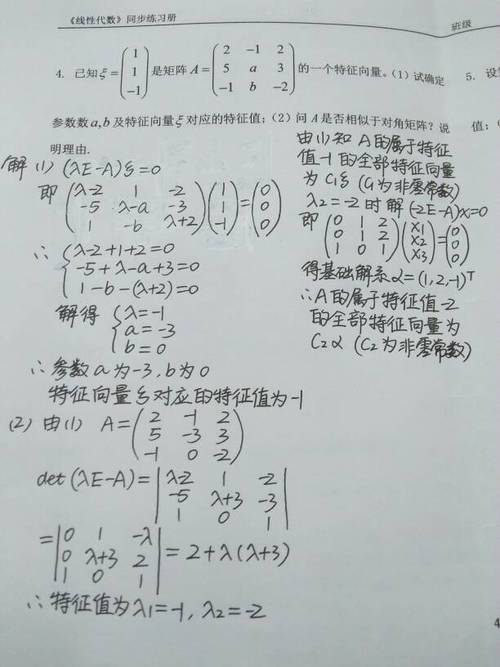 《线性代数》同步练习册
班级
4. 已知ξ=(1 1 -1)是矩阵A=(2 -1 2 5 a 3 -1 b -2)的一个特征向量。(1) 试确定
5. 设
参数数a,b及特征向量ξ对应的特征值；(2) 问A是否相似于对角矩阵？说
值；(
明理由.
解 (1) (λE-A)ξ=0
即 (λ-2 1 -2 -5 λ-a -3 1 -b λ+2)(1 1 -1)=(0 0 0)
∴ {λ-2+1+2=0
-5+λ-a+3=0
1-b-(λ+2)=0
解得 {λ=-1
a=-3
b=0
∴参数a为-3,b为0
特征向量ξ对应的特征值为-1
(2) 由(1) A=(2 -1 2 5 -3 3 -1 0 -2)
det(λE-A)=|λ-2 1 -2 -5 λ+3 -3 1 0 1|
=|0 1 -λ 0 λ+3 2 1 0 1|=2+λ(λ+3)
∴特征值为λ1=-1, λ2=-2
由(1)知 A的属于特征
值-1的全部特征向量
为C1ξ (C1为非零常数)
λ2=-2时解(-2E-A)x=0
即 (0 1 2 0 1 2 1 0 1)(x1 x2 x3)=(0 0 0)
得基础解系α=(1,2,-1)ᵀ
∴A的属于特征值-2
的全部特征向量为
C2α (C2为非零常数)
4